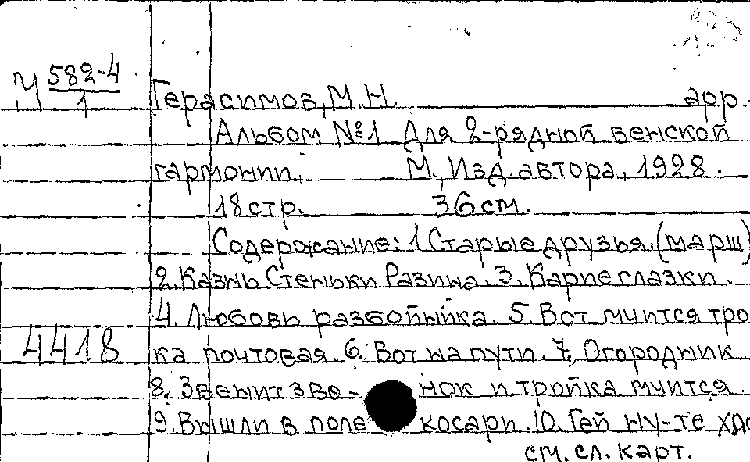 М 582-4
1
Герасимов, М.Н. арр.
Альбом №1 Для 2-рядной венской
гармонии, М, Изд. автора, 1928.
18 стр. 36 см.
Содержание: 1. Старые друзья (марш)
2. Казнь Стеньки Разина. 3. Карие глазки.
4. Любовь разбойника. 5. Вот мчится трой
4418
ка почтовая. 6. Вот на пути. 7. Огородник
8. Звенит зво- нок и тройка мчится.
9. Вышли в поле косари. 10. Гей ну-те хло
см. сл. карт.